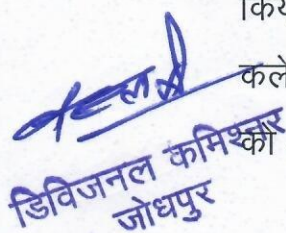 किय
कले
को
डिविजनल कमिश्नर
जोधपुर